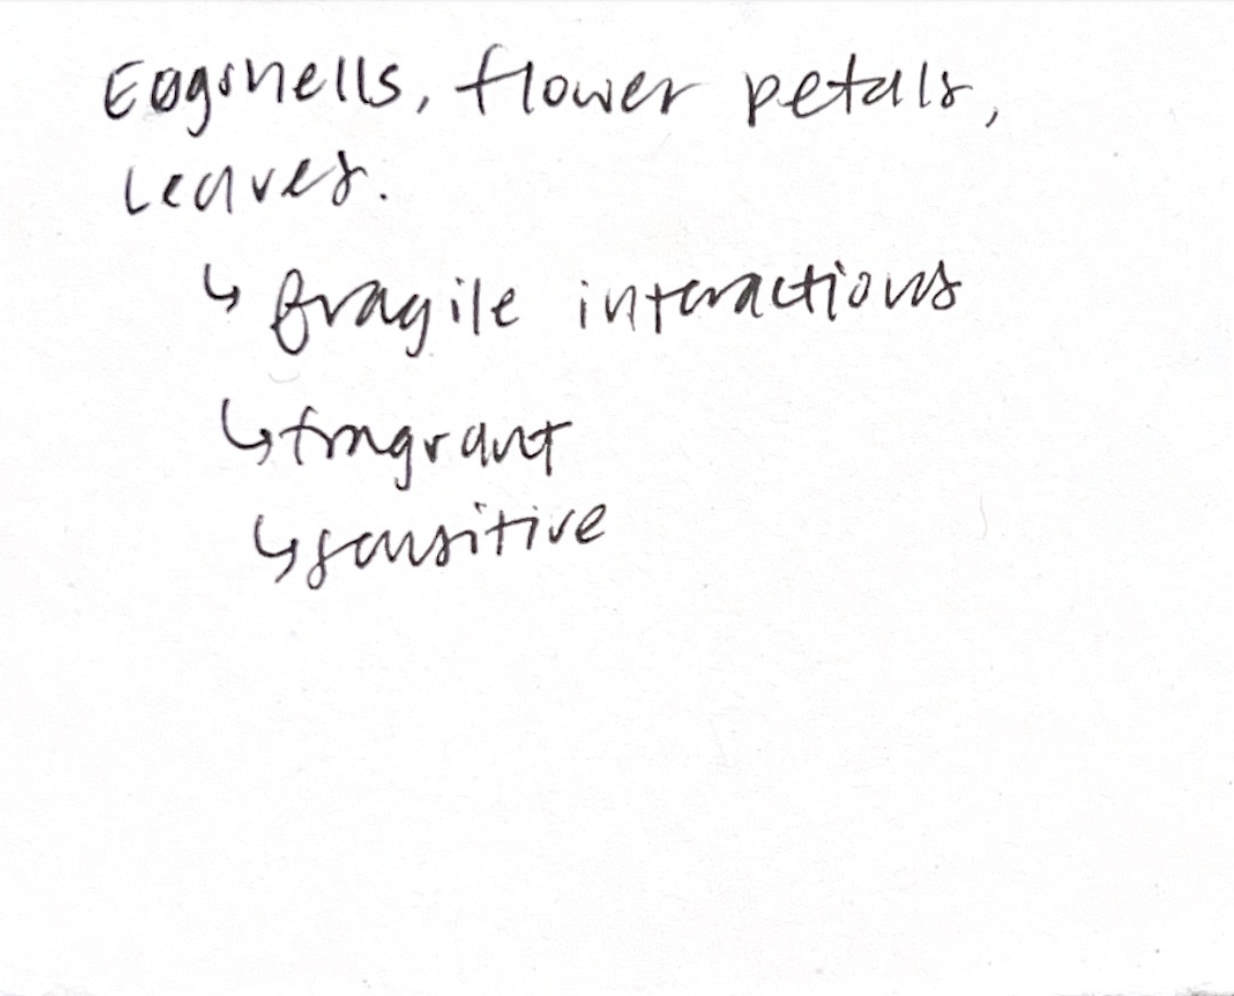 Eggshells, flower petals,
leaves.
↳ fragile interactions
↳ fragrant
↳ sensitive